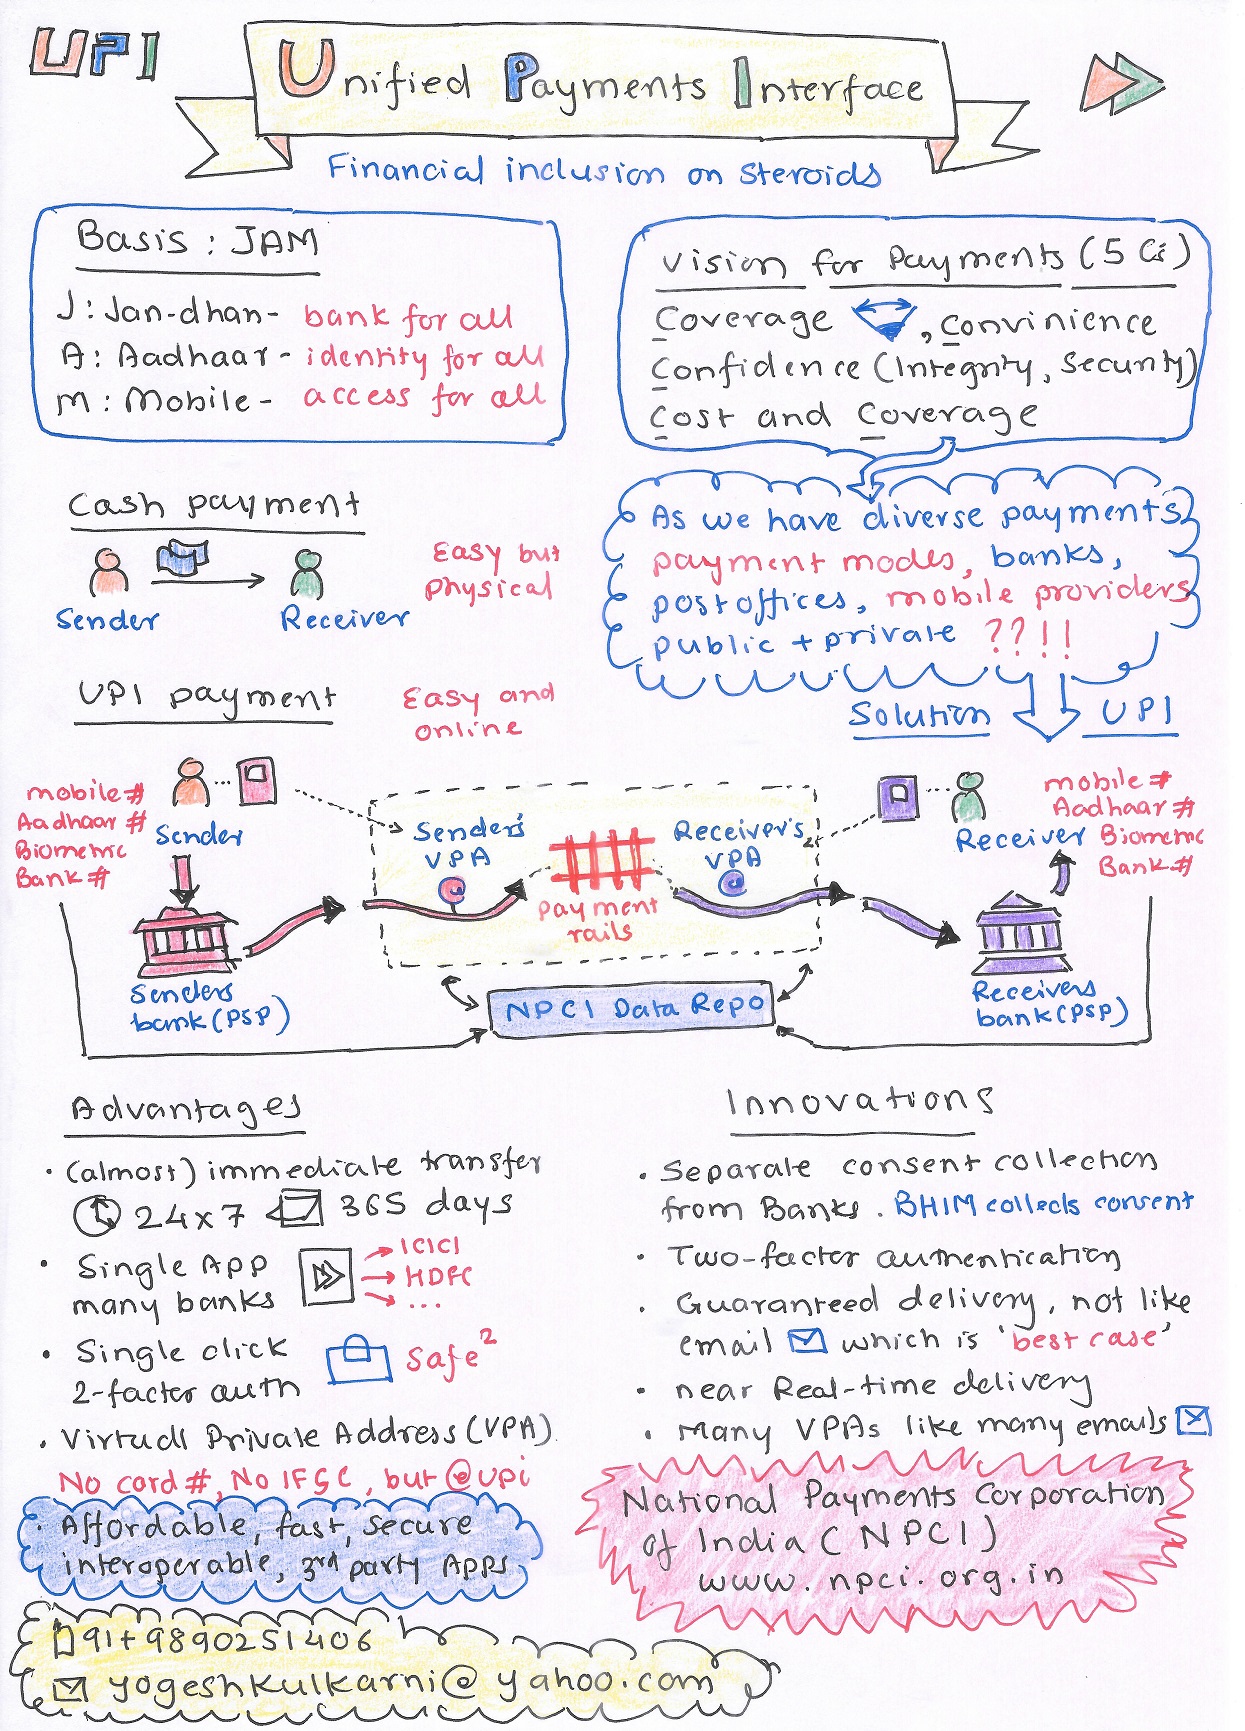 UPI
Unified Payments Interface
Financial inclusion on Steroids
Basis : JAM
J : Jan-dhan - bank for all
A : Aadhaar - identity for all
M : Mobile - access for all
Vision for Payments (5 Cs)
Coverage , Convinience
Confidence (Integrity, Security)
Cost and Coverage
As we have diverse payments
payment modes, banks,
postoffices, mobile providers
public + private ??!!
Solution UPI
Cash payment
Easy but
physical
Sender
Receiver
UPI payment
Easy and
online
mobile #
Aadhaar #
Biometric
Bank #
Sender
Senders
bank (PSP)
Sender's
VPA
payment
rails
Receiver's
VPA
Receiver
mobile #
Aadhaar #
Biometric
Bank #
Receivers
bank (PSP)
NPCI Data Repo
Advantages
• (almost) immediate transfer
24x7 365 days
• Single App
many banks
ICICI
HDFC
...
• Single click
2-factor auth
Safe²
• Virtual Private Address (VPA)
No card #, No IFSC, but @upi
• Affordable, fast, secure
interoperable, 3rd party Apps
Innovations
• Separate consent collection
from Banks. BHIM collects consent
• Two-factor authentication
• Guaranteed delivery, not like
email which is 'best case'
• near Real-time delivery
• Many VPAs like many emails
National Payments Corporation
of India (NPCI)
www.npci.org.in
91+9890251406
yogeshkulkarni@yahoo.com